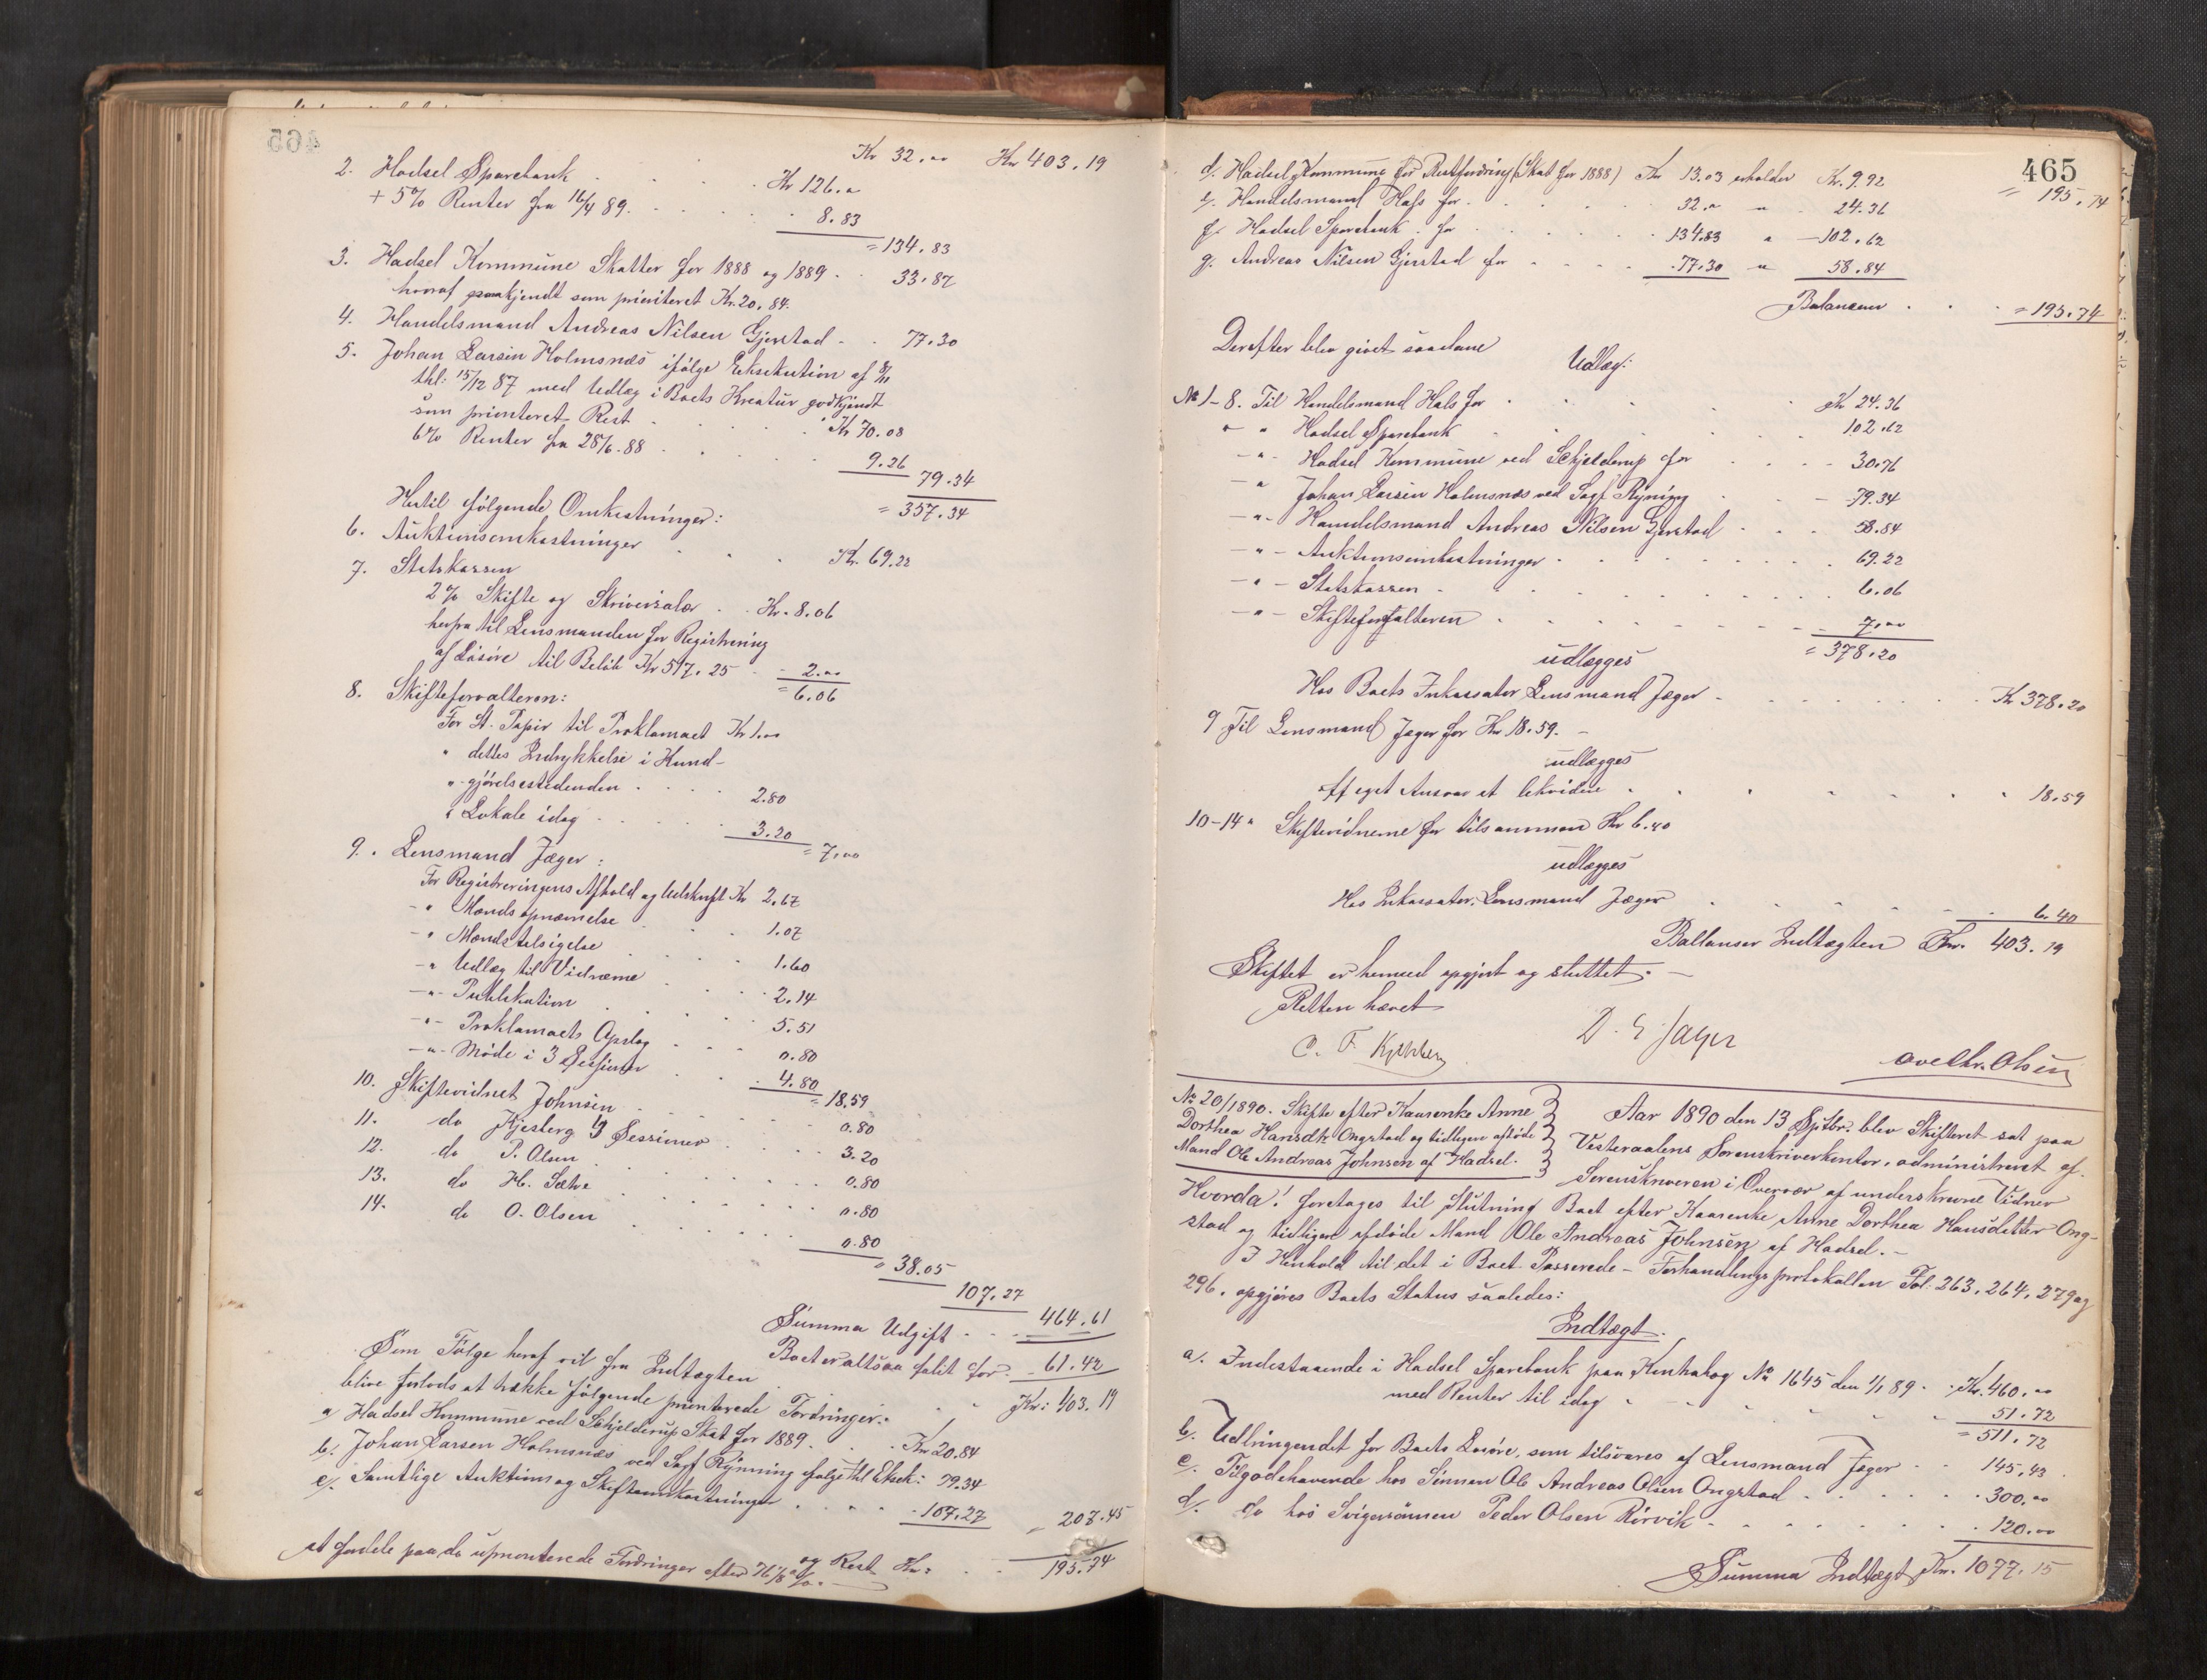 Kr 32.00 Kr 403.19
2. Hadsel Sparebank . . . . Kr 126.00
+ 5% Renter fra 16/4 89. . . . . 8.83
= 134.83
3. Hadsel Kommune Skatter for 1888 og 1889 . . 33.87
hvoraf godkjendt som prioriteret Kr. 20.84.
4. Handelsmand Andreas Nilsen Gjerstad - . 77.30
5. Johan Larsen Holmsnæs ifølge Eksekution af 8/11
thl: 15/12 87 med Udlæg i Boets Kreatur godkjendt
som prioriteret Rest . . . . . Kr 70.08
6% Renter fra 28/6.88 . . . . . 9.26
79.34
= 357.34
Hertil følgende Omkostninger:
6. Auktionsomkostninger . . . Kr. 69.22
7. Statskassen
2% Skifte og Skriversalær . . Kr. 8.06
herfra til Lensmanden for Registrering
af Løsøre til Beløb Kr 517.25 - 2.00
= 6.06
8. Skifteforvalteren:
For St. Papir til Proklamaet Kr 1.00
" dettes Indrykkelse i Kund-
"-gjørelsestidenden . . . . 2.80
" Lokale idag . . . . . 3.20
= 7.00
9. Lensmand Jæger:
For Registreringens Afhold og Udskrift Kr 2.67
-" Mændsopnævnelse . . . 1.07
-" Mændstilsigelse . . . 1.60
-" Udlæg til Vidnerne . . . 2.14
-"- Publikation . . . 5.51
-"- Proklamaets Opslag . . . 0.80
-"- Møde i 3 Sessioner . . . 4.80
= 18.59
10. Skiftevidnet Johnsen . . . 0.80
11. do Kjesberg 3 Sessioner . . . 3.20
12. do P. Olsen . . . 0.80
13. do H. Sætre . . . 0.80
14. do O. Olsen . . . 0.80
= 38.05
107.27
Summa Udgift . . . 464.61
Boet er altsaa falit for . - 61.42
Som Følge heraf vil fra Indtægten . . . Kr: 403.19
blive forlods at trække følgende prioriterede Fordringer:
a/ Hadsel Kommune ved Schjelderup Skat for 1889 . . . Kr 20.84
b/. Johan Larsen Holmsnæs ved Sagf Rynning ifølge thl Eksek: 79.34
c/. Samtlige Auktions og Skifteomkostninger . . . . - 107.27
= 207.45
og Rest Kr: . . 195.74
at fordele paa de uprioriterede Fordringer efter 76 1/8 %. -
465
d/. Hadsel Kommune for Restfordring (Skat for 1888) Kr 13.03 erholder Kr. 9.92
= 195.74
e/. Handelsmand Hals for . . . . 32.00 " - 24.36
f/. Hadsel Sparebank . for . . . . 134.83 " - 102.62
g. Andreas Nilsen Gjerstad for . . . . 77.30 " 58.84
Balancerer . . . = 195.74
Derefter blev givet saadane
Udlæg:
No 1-8. Til Handelsmand Hals for . . . . Kr 24.36
" " Hadsel Sparebank . . . . 102.62
-"- Hadsel Kommune ved Schjelderup for . . . 30.76
-" Johan Larsen Holmsnæs ved Sagf. Rynning . . - 79.34
-"- Handelsmand Andreas Nilsen Gjerstad . . . 58.84
-"- Auktionsomkostninger . . . . 69.22
-"- Statskassen . . . . 6.06
-"- Skifteforvalteren . . . . 7.00
= 378.20
udlægges
Hos Boets Inkassator Lensmand Jæger . . . . Kr 378.20
9 Til Lensmand Jæger for Kr 18.59. -
udlægges
Af eget Ansvar at likvidere . . . . 18.59
10-14 " Skiftevidnerne for tilsammen Kr 6.40
udlægges
Hos Inkassator, Lensmand Jæger . . . . 6.40
Ballanser Indtægten Kr. 403.19
Skiftet er hermed opgjort og sluttet. -
Retten hævet
D. E. Jæger
Ove Chr. Olsen
No 20/1890. Skifte efter Kaarenke Anne
Dorthea Hansdtr Ongstad og tidligere afdøde
Mand Ole Andreas Johnsen af Hadsel.
Aar 1890 den 13 Septbr. blev Skifteret sat paa
Vesteraalens Sorenskriverkontor, administreret af
Sorenskriveren i Overvær af underskrevne Vidner
Hvorda! foretages til Slutning Boet efter Kaarenke Anne Dorthea Hansdatter Ong-
stad og tidligere afdøde Mand Ole Andreas Johnsen af Hadsel. -
I Henhold til det i Boet Passerede - Forhandlingsprotokollen Fol: 263, 264, 279 og
296, opgjøres Boets Status saaledes:
Indtægt.
a/. Indestaaende i Hadsel Sparebank paa Kontrabog No 1645 den 1/1 89 . . Kr. 460.00
med Renter til idag . . . . 51.72
= 511.72
b/. Udbringendet for Boets Løsøre, som tilsvares af Lensmand Jæger . . 145.43
c/. Tilgodehavende hos Sønnen Ole Andreas Olsen Ongstad . . . . 300.00
d/. do hos Svigersønnen Peder Olsen Rørvik . . . . 120.00
Summa Indtægt Kr. 1077.15